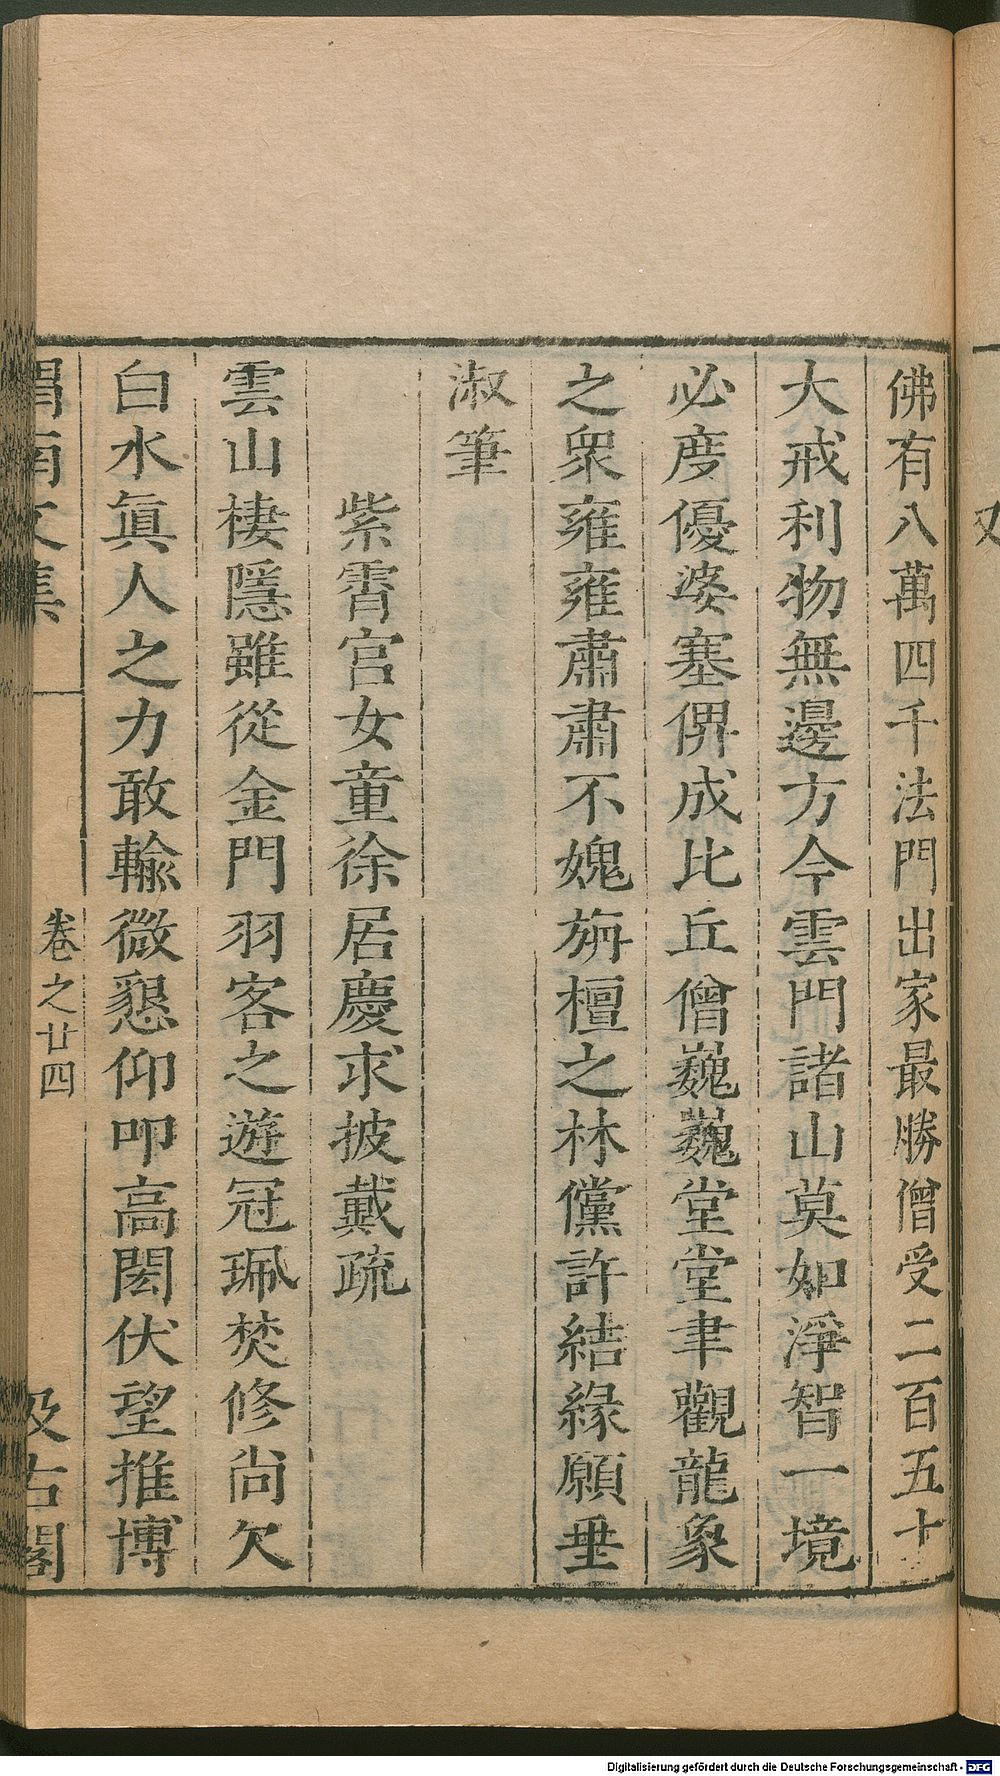 佛有八萬四千法門出家最勝僧受二百五十
大戒利物無邊方今雲門諸山莫如淨智一境
必度優婆塞俾成比丘僧巍巍堂堂聿觀龍象
之衆雍雍肅肅不媿旃檀之林儻許結緣願垂
淑筆
紫霄宮女童徐居慶求披戴疏
雲山棲隱雖從金門羽客之遊冠珮焚修尙欠
白水眞人之力敢輸微懇仰叩高閎伏望推博
渭南文集
卷之廿四
汲古閣
又
Digitalisierung gefördert durch die Deutsche Forschungsgemeinschaft - DFG